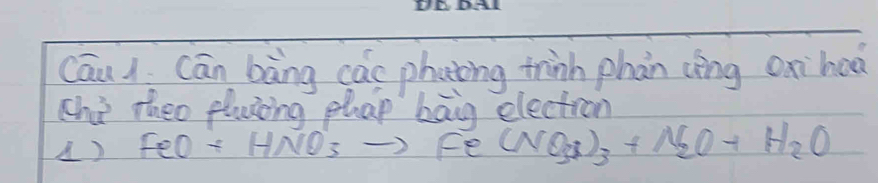 ĐỀ BÀI
Câu 1. Cân bằng các phương trình phản ứng oxi hoá
khử theo phương pháp bằng electron
1) FeO + HNO₃ → Fe(NO₃)₃ + N₂O + H₂O